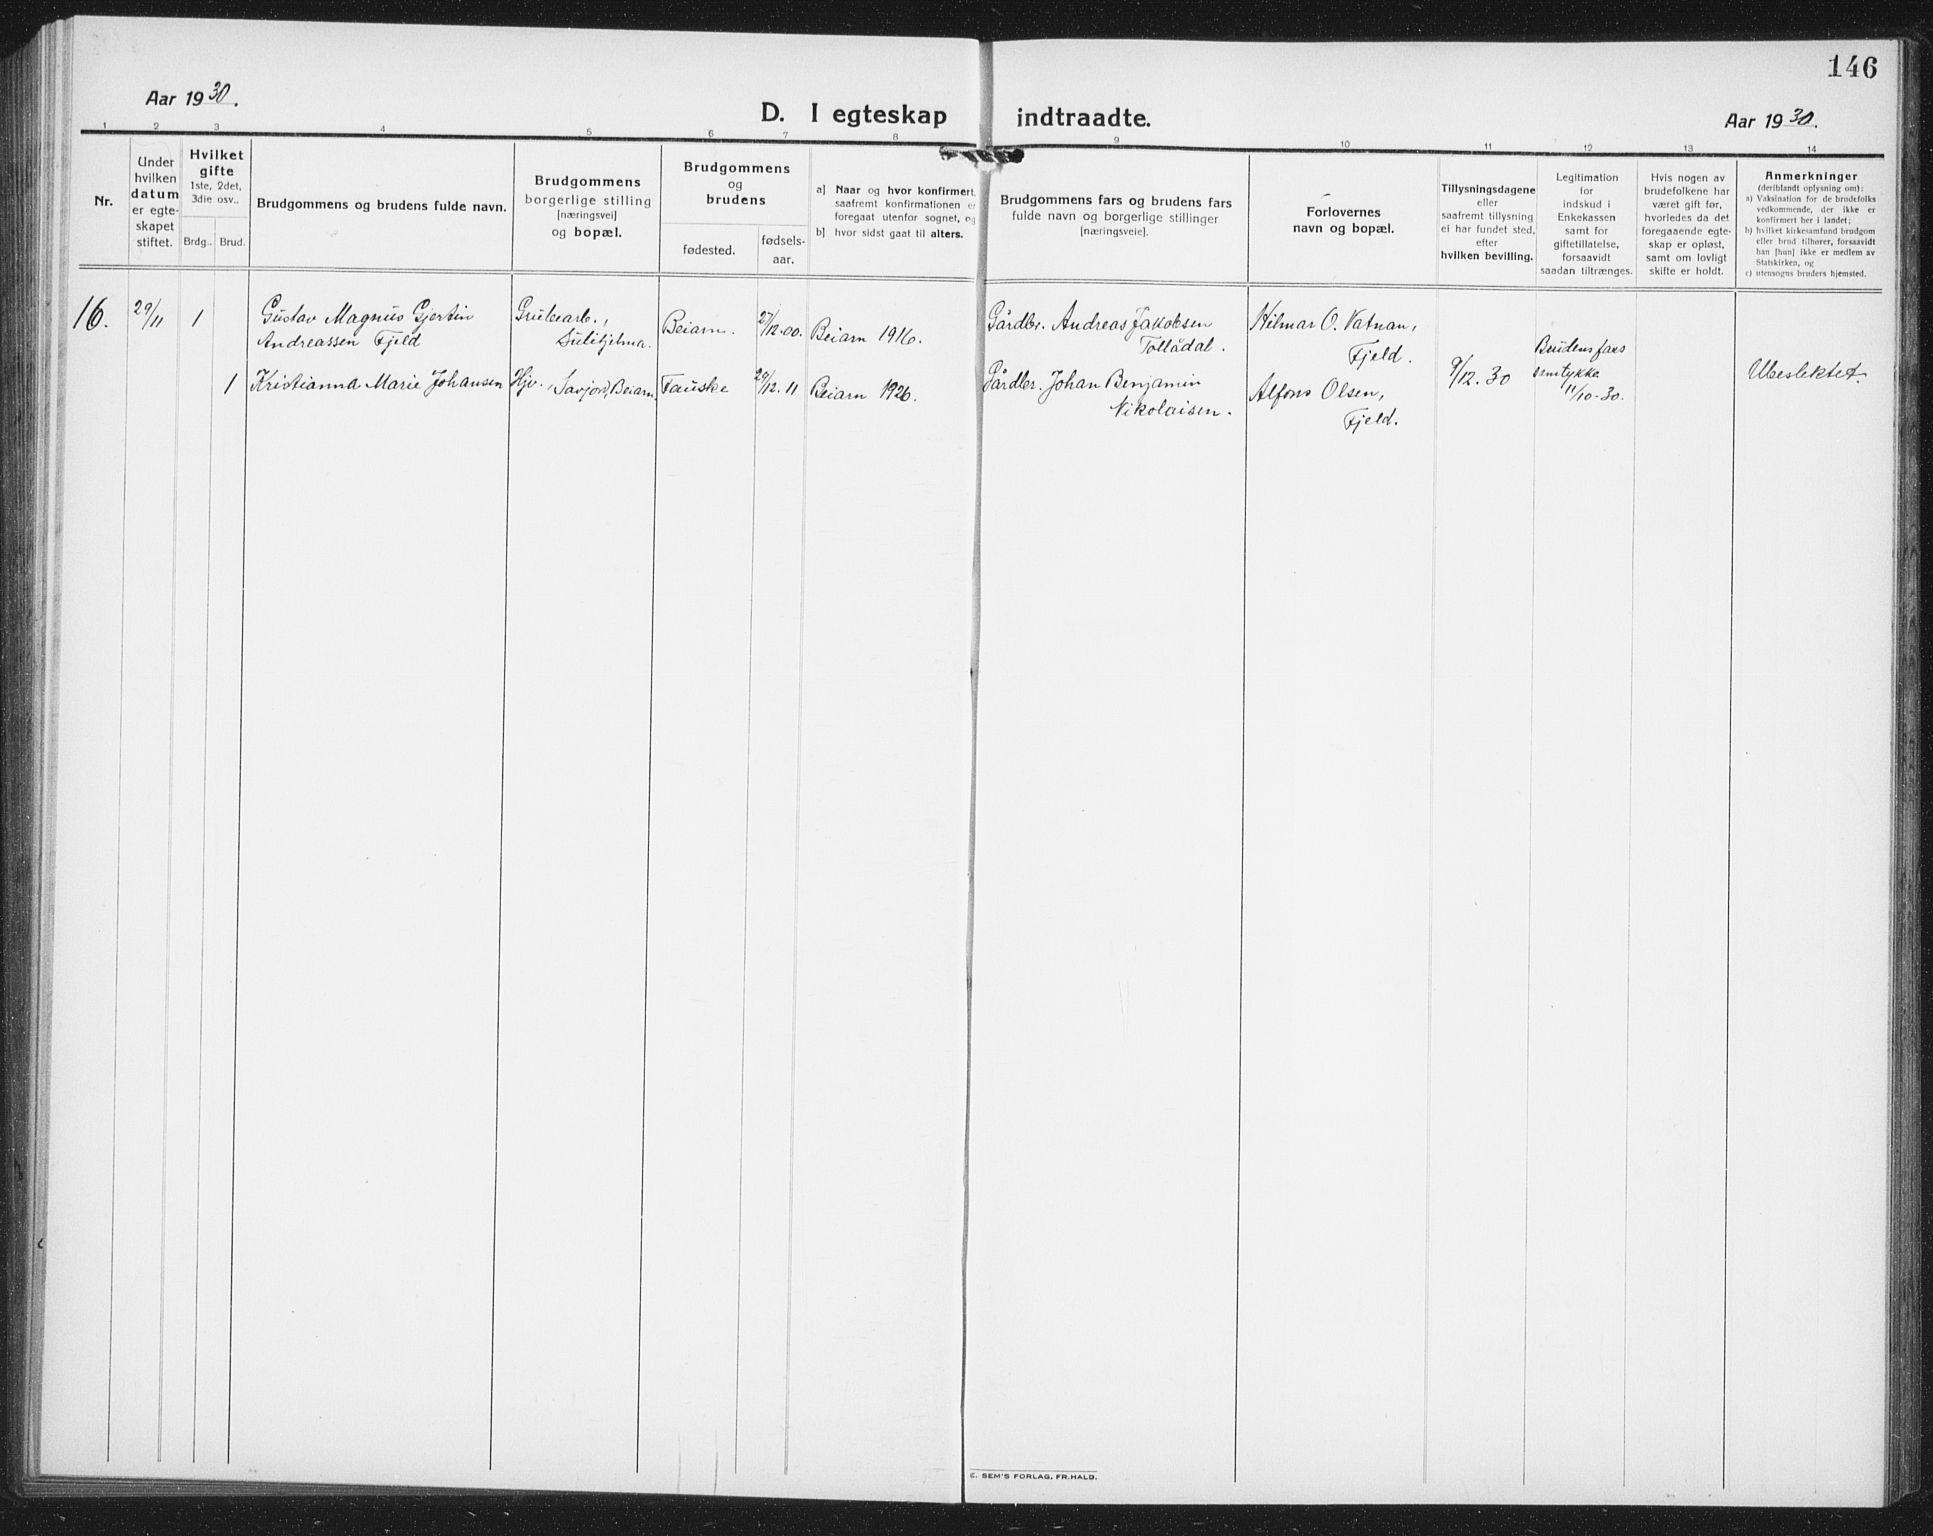 146
Aar 1930.
D. I egteskap indtraadte.
Aar 1930.
1 2 3 4 5 6 7 8 9 10 11 12 13 14
Nr.
Under
hvilken
datum
er egte-
skapet
stiftet.
Hvilket
gifte
1ste, 2det,
3die osv..
Brdg.. Brud.
Brudgommens og brudens fulde navn.
Brudgommens
borgerlige stilling
[næringsvei]
og bopæl.
Brudgommens
og
brudens
fødested.
fødsels-
aar.
a] Naar og hvor konfirmert,
saafremt konfirmationen er
foregaat utenfor sognet, og
b] hvor sidst gaat til alters.
Brudgommens fars og brudens fars
fulde navn og borgerlige stillinger
[næringsveie].
Forlovernes
navn og bopæl.
Tillysningsdagene
eller
saafremt tillysning
ei har fundet sted,
efter
hvilken bevilling.
Legitimation
for
indskud i
Enkekassen
samt for
giftetillatelse,
forsaavidt
saadan tiltrænges.
Hvis nogen av
brudefolkene har
været gift før,
hvorledes da det
foregaaende egte-
skap er opløst,
samt om lovligt
skifte er holdt.
Anmerkninger
(deriblandt oplysning om):
a) Vaksination for de brudefolks
vedkommende, der ikke er
konfirmert her i landet;
b) hvilket kirkesamfund brudgom
eller brud tilhører, forsaavidt
han [hun] ikke er medlem av
Statskirken, og
c) utensogns bruders hjemsted.
16. 29/11 1
Gustav Magnus Gjertin
Andreassen Fjeld
Grubearb.,
Sulitjelma.
Beiarn. 27/12.00. Beiarn 1916.
Gårdbr. Andreas Jakobsen
Tollådal.
Hilmar O. Vatnan,
Fjeld.
1 Kristianna Marie Johansen
Hjv., Savjord, Beiarn.
Fauske 29/12.11 Beiarn 1926.
Gårdbr. Johan Benjamin
Nikolaisen.
Alfons Olsen,
Fjeld.
9/12.30
Brudens fars
smtykke
11/10-30.
Ubeslektet.
E. SEM'S FORLAG, FR.HALD.